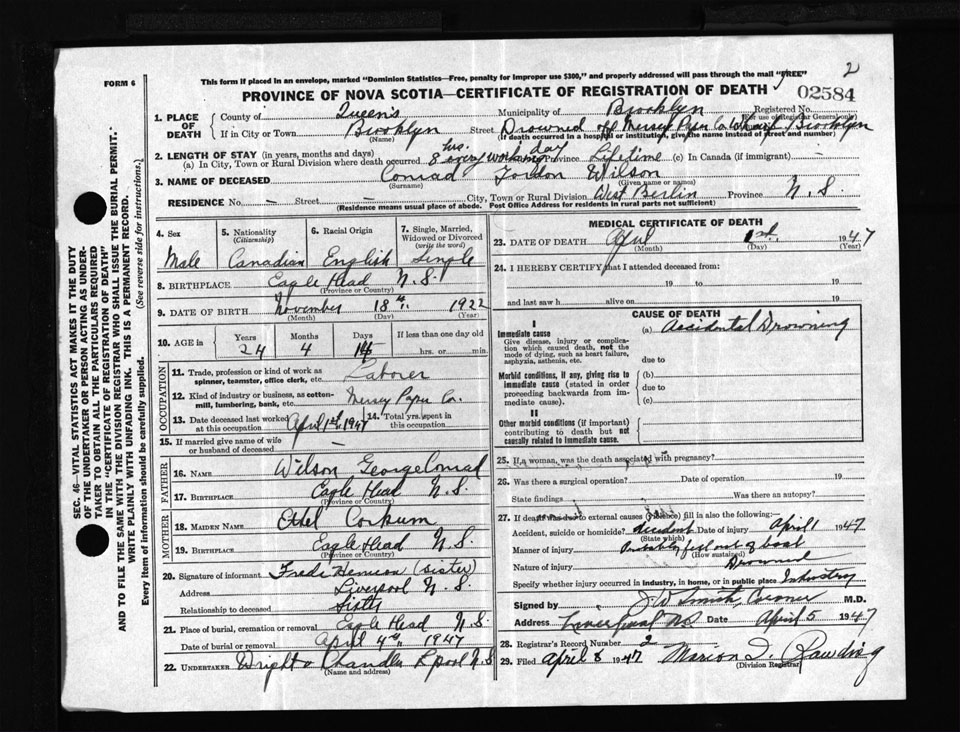 FORM 6
This form if placed in an envelope, marked "Dominion Statistics—Free, penalty for improper use $300," and properly addressed will pass through the mail "FREE"
2
PROVINCE OF NOVA SCOTIA—CERTIFICATE OF REGISTRATION OF DEATH
02584
1. PLACE OF DEATH
County of Queen's Municipality of Brooklyn Registered No.
(For use of Registrar General only)
If in City or Town Brooklyn Street Drowned off Mersey Paper Co. Wharf, Brooklyn
(Name) (If death occurred in a hospital or institution, give the name instead of street and number)
2. LENGTH OF STAY (in years, months and days)
(a) In City, Town or Rural Division where death occurred 8 hrs. every working day Province Lifetime (c) In Canada (if immigrant) —
3. NAME OF DECEASED Conrad Gordon Wilson
(Surname) (Given name or names)
RESIDENCE No. — Street — City, Town or Rural Division West Berlin Province N.S.
(Residence means usual place of abode. Post Office Address for residents in rural parts not sufficient)
SEC. 46—VITAL STATISTICS ACT MAKES IT THE DUTY
OF THE UNDERTAKER OR PERSON ACTING AS UNDERTAKER TO OBTAIN ALL THE PARTICULARS REQUIRED
IN THE "CERTIFICATE OF REGISTRATION OF DEATH"
AND TO FILE THE SAME WITH THE DIVISION REGISTRAR WHO SHALL ISSUE THE BURIAL PERMIT.
WRITE PLAINLY WITH UNFADING INK. THIS IS A PERMANENT RECORD.
Every item of information should be carefully supplied. (See reverse side for instructions.)
4. Sex Male
5. Nationality (Citizenship) Canadian
6. Racial Origin English
7. Single, Married, Widowed or Divorced (write the word) Single
8. BIRTHPLACE Eagle Head N.S.
(Province or Country)
9. DATE OF BIRTH November 18th, 1922
(Month) (Day) (Year)
10. AGE in Years 24 Months 4 Days 14 If less than one day hrs. or min.
OCCUPATION
11. Trade, profession or kind of work as spinner, teamster, office clerk, etc. Laborer
12. Kind of industry or business, as cotton-mill, lumbering, bank, etc. Mersey Paper Co.
13. Date deceased last worked at this occupation April 1st, 1947 14. Total yrs. spent in this occupation
15. If married give name of wife or husband of deceased —
FATHER
16. NAME Wilson George Conrad
17. BIRTHPLACE Eagle Head N.S.
(Province or Country)
MOTHER
18. MAIDEN NAME Ethel Corkum
19. BIRTHPLACE Eagle Head N.S.
(Province or Country)
20. Signature of informant (sister)
Address Liverpool N.S.
Relationship to deceased Sister
21. Place of burial, cremation or removal Eagle Head N.S.
Date of burial or removal April 4th, 1947
22. UNDERTAKER Wright & Chandler L'pool N.S.
(Name and address)
MEDICAL CERTIFICATE OF DEATH
23. DATE OF DEATH April 1st. 1947
(Month) (Day) (Year)
24. I HEREBY CERTIFY that I attended deceased from:
19 to 19
and last saw h alive on 19
CAUSE OF DEATH
I
Immediate cause
Give disease, injury or complication which caused death, not the mode of dying, such as heart failure, asphyxia, asthenia, etc.
(a) Accidental Drowning
due to
Morbid conditions, if any, giving rise to immediate cause (stated in order proceeding backwards from immediate cause).
(b)
due to
(c)
II
Other morbid conditions (if important) contributing to death but not causally related to immediate cause.
25. If a woman, was the death associated with pregnancy?
26. Was there a surgical operation? Date of operation 19
State findings Was there an autopsy?
27. If death was due to external causes (violence) fill in also the following:
Accident, suicide or homicide? Accident Date of injury April 1 1947
(State which)
Manner of injury Probably fell out of boat
(How sustained)
Nature of injury Drowned
Specify whether injury occurred in industry, in home, or in public place Industry
Signed by J.W. Smith, Coroner M.D.
Address Liverpool NS Date April 5 1947
28. Registrar's Record Number 2
29. Filed April 8 1947 Marion Rawding
(Division Registrar)